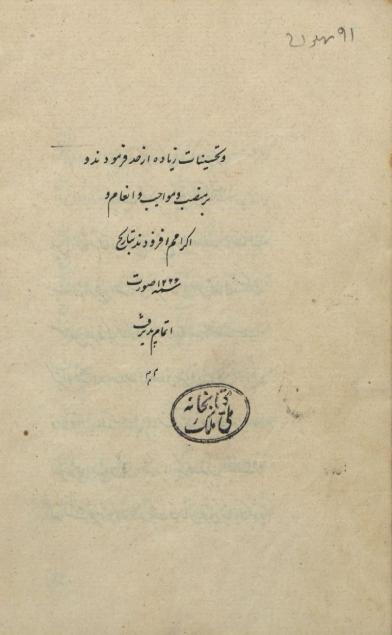 ۹۱
و تحسینات زیاده از حد فرمودند و
بر منصب و مواجب و انعام و
اکرامم افزودند بتاریخ
سنه ۱۲۲۶ صورت
اتمام پذیرفت
کتابخانه
ملی ملک